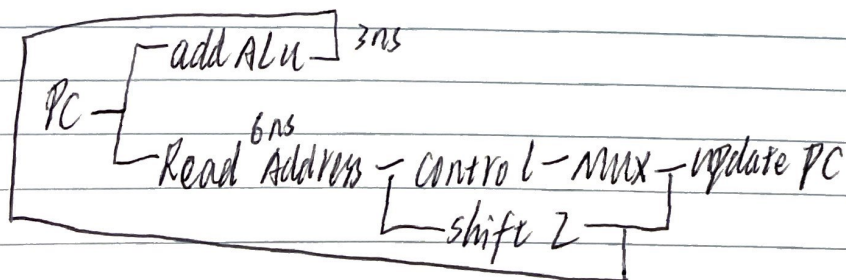 add ALU 3ns
PC
6ns
Read Address - control - MUX - update PC
shift 2